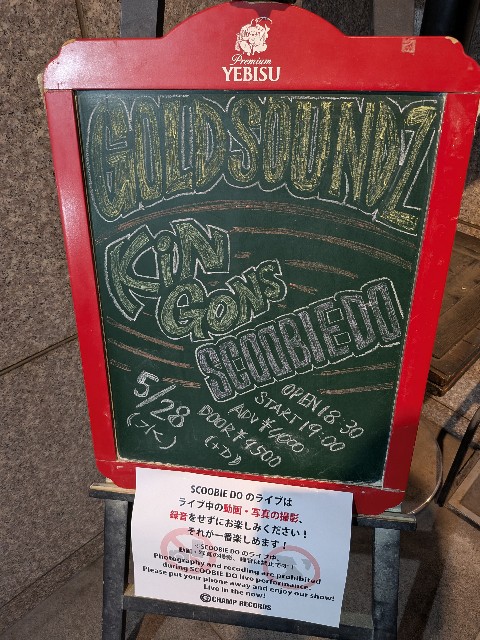 Premium
YEBISU
GOLDSOUNDZ
KiNGONS
SCOOBIE DO
5/28
(水)
OPEN 18:30
START 19:00
ADV ¥4000
DOOR ¥4500
(+D)
SCOOBIE DO のライブは
ライブ中の動画・写真の撮影、
録音をせずにお楽しみください！
それが一番楽しめます！
※SCOOBIE DO のライブ中、
動画・写真の撮影、録音は禁止です！
Photography and recoding are prohibited
during SCOOBIE DO live performance.
Please put your phone away and enjoy our show!
Live in the now!
CHAMP RECORDS